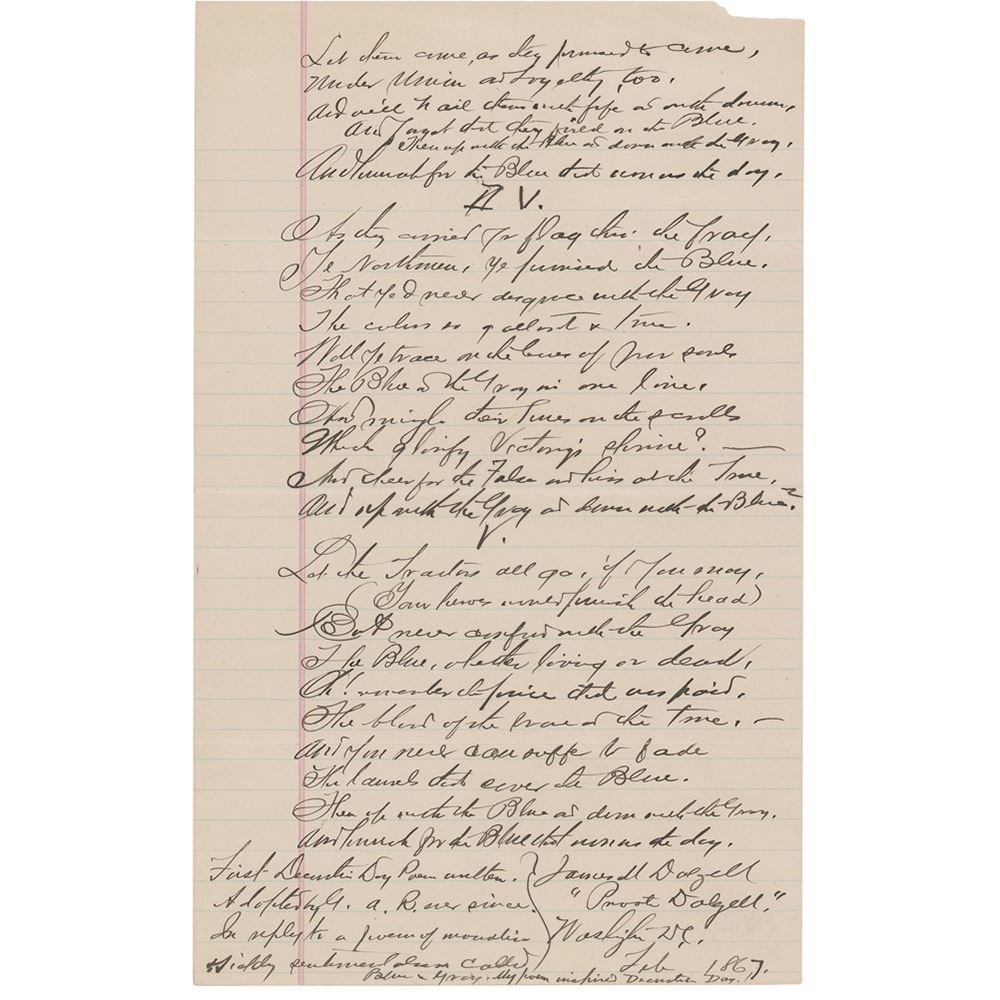 Let them come, as they promised to come,
Under Union and Loyalty, too,
And we'll hail them with fife and with drum,
And forget that they fired on the Blue.
Then up with the Blue and down with the Gray,
And hurrah for the Blue that won us the day.
IV.
As they carried yr flag thro' the fray,
Ye Northmen, ye promised the Blue,
That ye'd never disgrace with the Gray
The colors so gallant & true.
Will ye trace on the leaves of your souls
The Blue and the Gray in one line,
And mingle their hues on the scrolls
Which glorify Victory's shrine? —
And cheer for the False and hiss at the True,
And up with the Gray and down with the Blue?
V.
Let the Traitors all go, if you may,
(Your heroes would punish the head)
But never confound with the Gray
The Blue, whether living or dead,
Oh! remember the price that was paid,
The blood of the brave and the true, —
And you never can suffer to fade
The laurels that cover the Blue.
Then up with the Blue and down with the Gray,
And hurrah for the Blue that won us the day.
First Decoration Day Poem written.
Adopted by G. A. R. ever since.
In reply to a poem of
sickly sentimentalism called
Blue & Gray. My poem inspired Decoration Day.
James M Dalzell
"Private Dalzell,"
Washington, D.C.
Feb 1867.